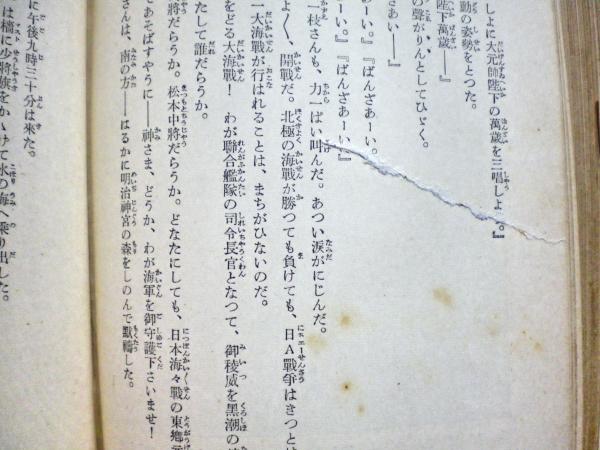 しよに大元帥陛下の萬歲を三唱しよ　。』
動の姿勢をとつた。
陛下萬歲――』
の聲がりんとしてひゞく。
さあい――』
あーい。』『ばんさあーい。』
あーい。』『ばんさあーい。』
一枝さんも、力一ぱい叫んだ。あつい淚がにじんだ。
よ〱、開戰だ。北極の海戰が勝つても負けても、日Ａ戰爭はきつと
一大海戰が行はれることは、まちがひないのだ。
をどる大海戰！　わが聯合艦隊の司令長官となつて、御稜威を黑潮の
たして誰だらうか。
將だらうか。松本中將だらうか。どなたにしても、日本海々戰の東鄕
であそばすやうに――神さま、どうか、わが海軍を御守護下さいませ！
さんは、南の方――はるかに明治神宮の森をしのんで默禱した。
に午後九時三十分は來た。
は檣に少將旗をかゝげて氷の海へ乘り出した。